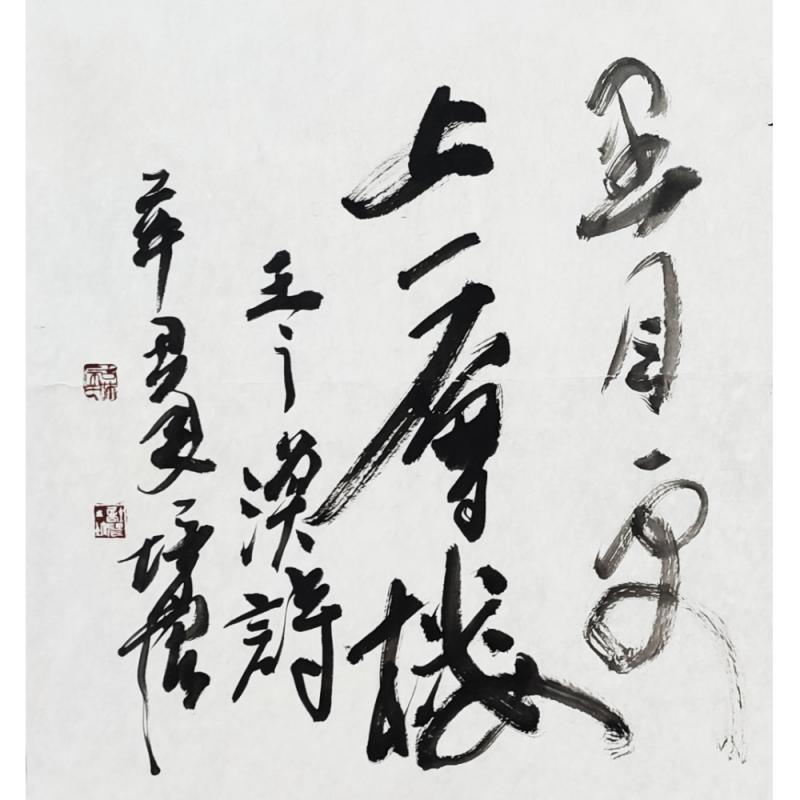 里目更
上一層樓
王之渙詩
辛丑夏